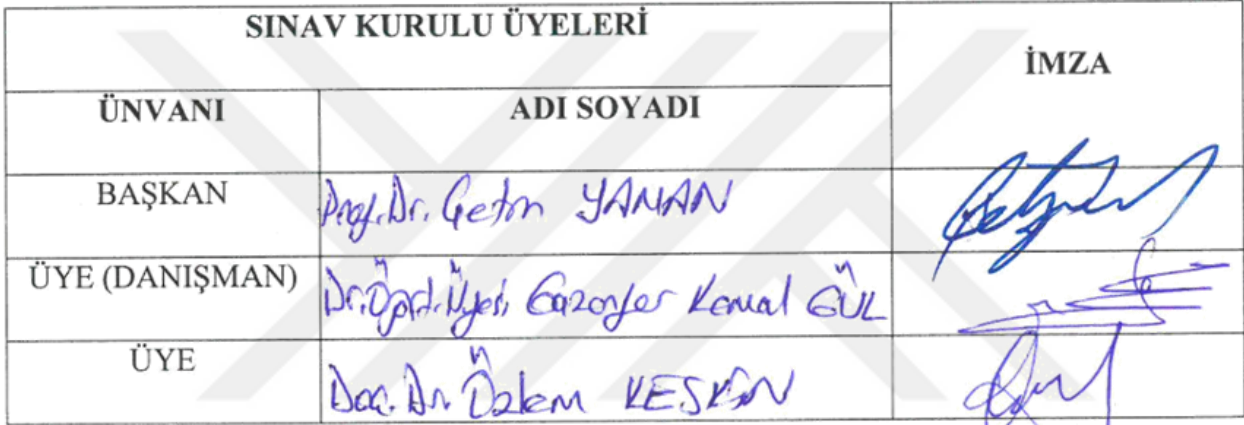 SINAV KURULU ÜYELERİ
İMZA
ÜNVANI ADI SOYADI
BAŞKAN Prof. Dr. Çetin YAMAN
ÜYE (DANIŞMAN) Dr. Öğrt. Üyesi Gazanfer Kemal GÜL
ÜYE Doç. Dr. Özlem KESKİN